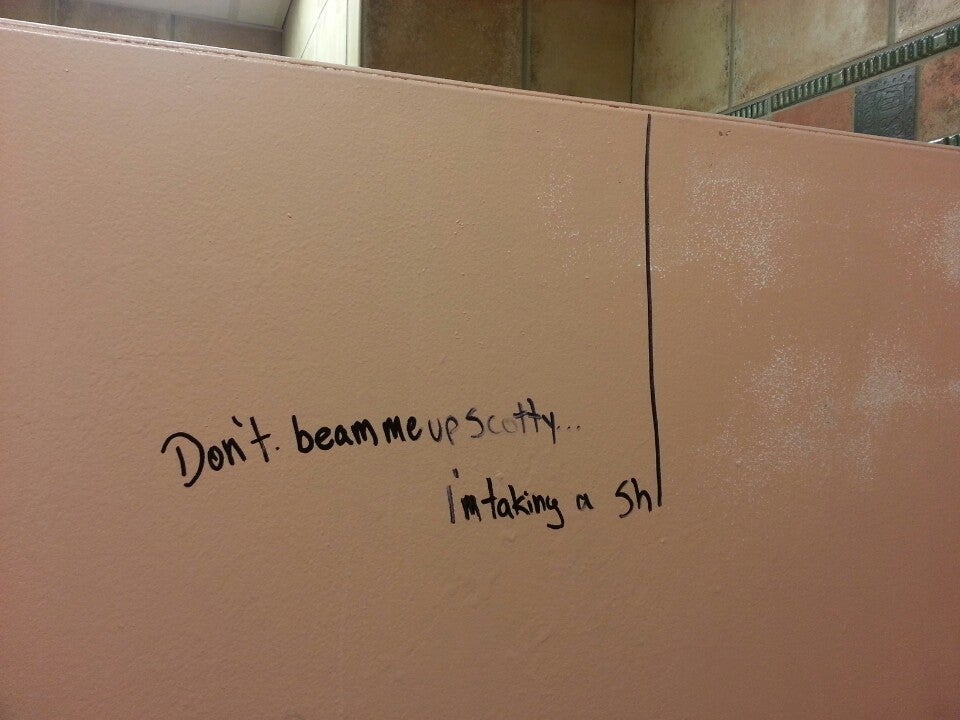 Don't. beam me up Scotty...
I'm taking a Sh